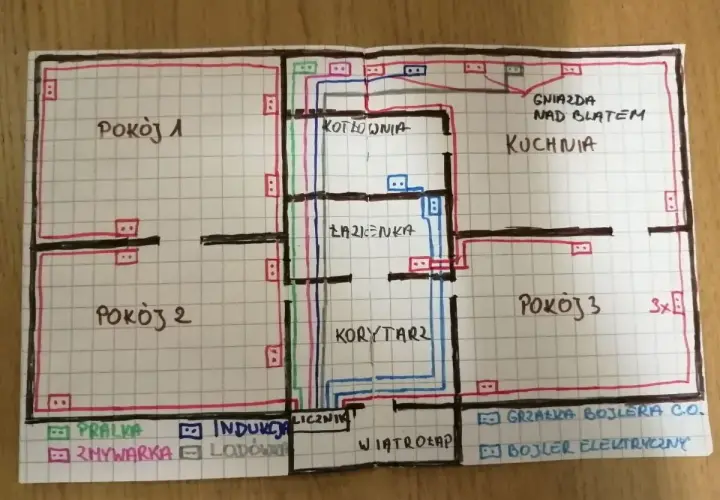 POKÓJ 1
GNIAZDA
NAD BLATEM
KUCHNIA
KOTŁOWNIA
ŁAZIENKA
POKÓJ 2
KORYTARZ
POKÓJ 3
3x
LICZNIK
WIATROŁAP
PRALKA
INDUKCJA
ZMYWARKA
LODÓWKA
GRZAŁKA BOJLERA C.O.
BOJLER ELEKTRYCZNY